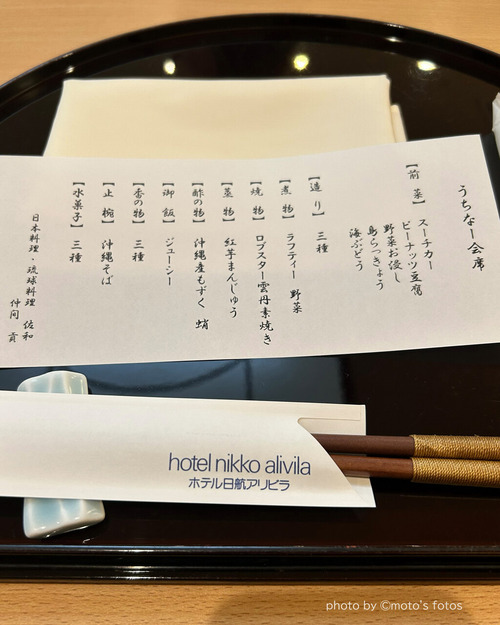 うちなー会席
【前 菜】 スーチカー
ピーナッツ豆腐
野菜お浸し
島らっきょう
海ぶどう
【造 り】 三種
【煮 物】 ラフティー 野菜
【焼 物】 ロブスター雲丹素焼き
【蒸 物】 紅芋まんじゅう
【酢の物】 沖縄産もずく 蛸
【御 飯】 ジューシー
【香の物】 三種
【止 椀】 沖縄そば
【水菓子】 三種
日本料理・琉球料理 佐和
仲間 貢
hotel nikko alivila
ホテル日航アリビラ
photo by ©moto's fotos